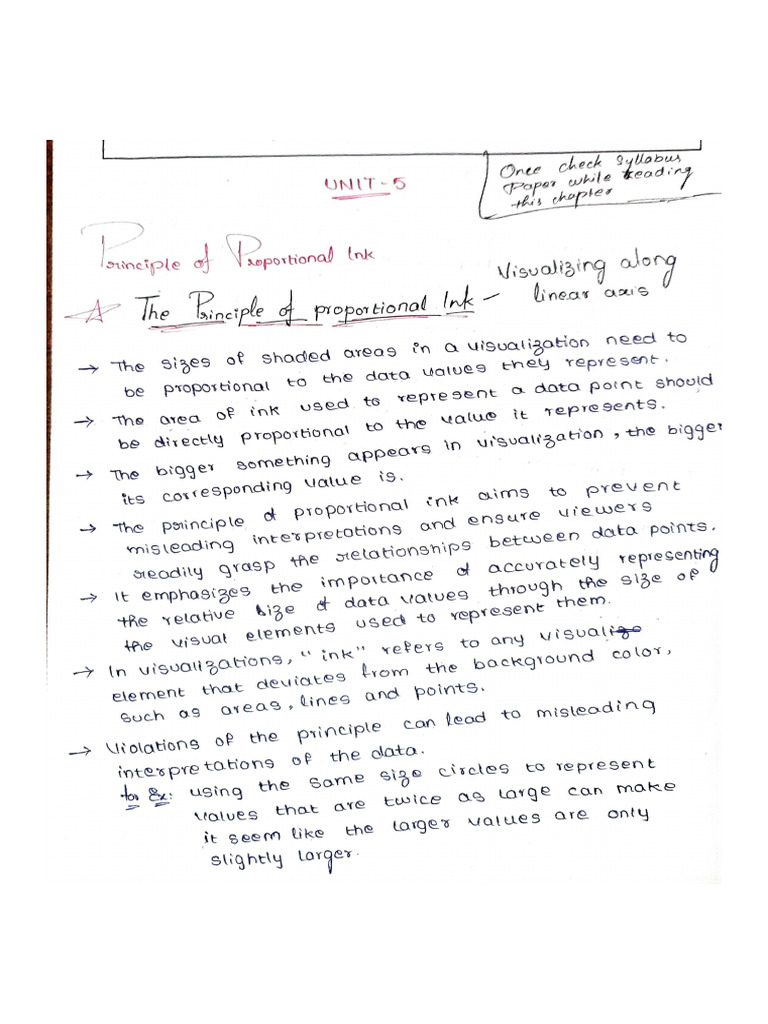 Once check Syllabus
Paper while reading
this chapter
UNIT-5
Principle of Proportional Ink
Visualizing along
linear axis
The Principle of proportional Ink -
→ The sizes of shaded areas in a visualization need to
be proportional to the data values they represent.
→ The area of ink used to represent a data point should
be directly proportional to the value it represents.
→ The bigger something appears in visualization, the bigger
its corresponding value is.
→ The principle of proportional ink aims to prevent
misleading interpretations and ensure viewers
readily grasp the relationships between data points.
→ It emphasizes the importance of accurately representing
the relative size of data values through the size of
the visual elements used to represent them.
→ In visualizations, "ink" refers to any visual
element that deviates from the background color,
such as areas, lines and points.
→ Violations of the principle can lead to misleading
interpretations of the data.
for Ex: using the same size circles to represent
values that are twice as large can make
it seem like the larger values are only
slightly larger.